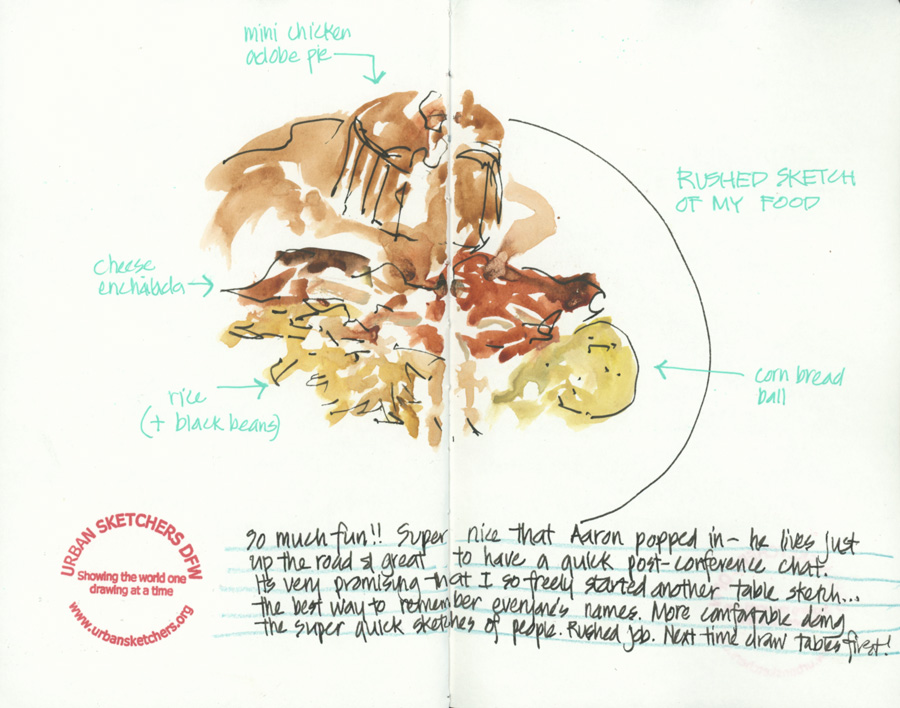 mini chicken
adobe pie
RUSHED SKETCH
OF MY FOOD
cheese
enchilada
corn bread
ball
rice
(+ black beans)
URBAN SKETCHERS DFW
Showing the world one
drawing at a time
www.urbansketchers.org
So much fun!! Super nice that Aaron popped in - he lives just
up the road & great to have a quick post-conference chat.
It's very promising that I so freely started another table sketch...
the best way to remember everyone's names. More comfortable doing
the super quick sketches of people. Rushed job. Next time draw tables first!